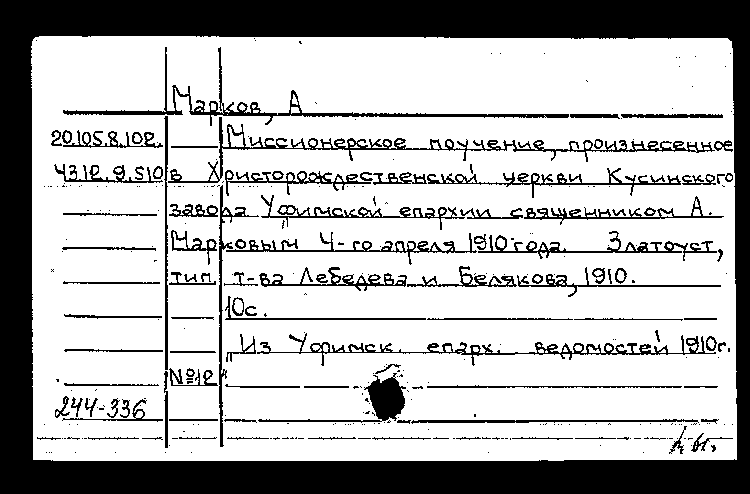 Марков, А
20.105.8.102. Миссионерское поучение, произнесенное
43.12.9.510 в Христорождественской церкви Кусинского
завода Уфимской епархии священником А.
Марковым 4-го апреля 1910 года. Златоуст,
тип. т-ва Лебедева и Белякова, 1910.
10с.
„Из Уфимск. епарх. ведомостей 1910г.
№12"
244-336